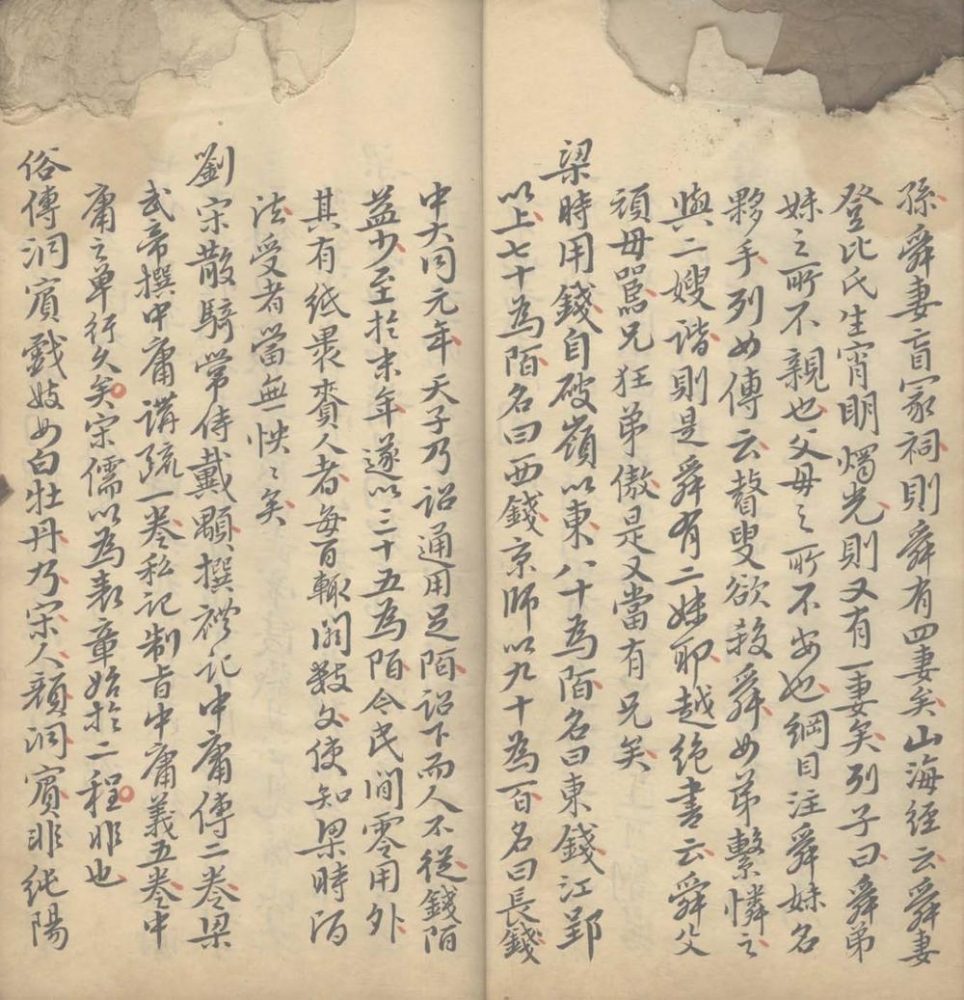 孫舜妻盲冢祠則舜有四妻矣山海經云舜妻
登比氏生宵明燭光則又有一妻矣列子曰舜弟
妹之所不親也父母之所不安也綱目注舜妹名
夥手列女傳云瞽叟欲殺舜女弟繫憐之
與二嫂諧則是舜有二妹耶越絕書云舜父
頑母嚚兄狂弟傲是又當有兄矣
梁時用錢自破嶺以東八十為陌名曰東錢江郢
以上七十為陌名曰西錢京師以九十為百名曰長錢
中大同元年天子乃詔通用足陌詔下而人不從錢陌
益少至於末年遂以三十五為陌今民間零用外
其有紙裹賚人者每百輒闕數文使知梁時陌
法受者當無怏〻矣
劉宋散騎常侍戴顒撰禮記中庸傳二卷梁
武帝撰中庸講疏一卷私記制旨中庸義五卷中
庸之單行久矣宋儒以為表章始於二程非也
俗傳洞賓戲妓女白牡丹乃宋人顏洞賓非純陽